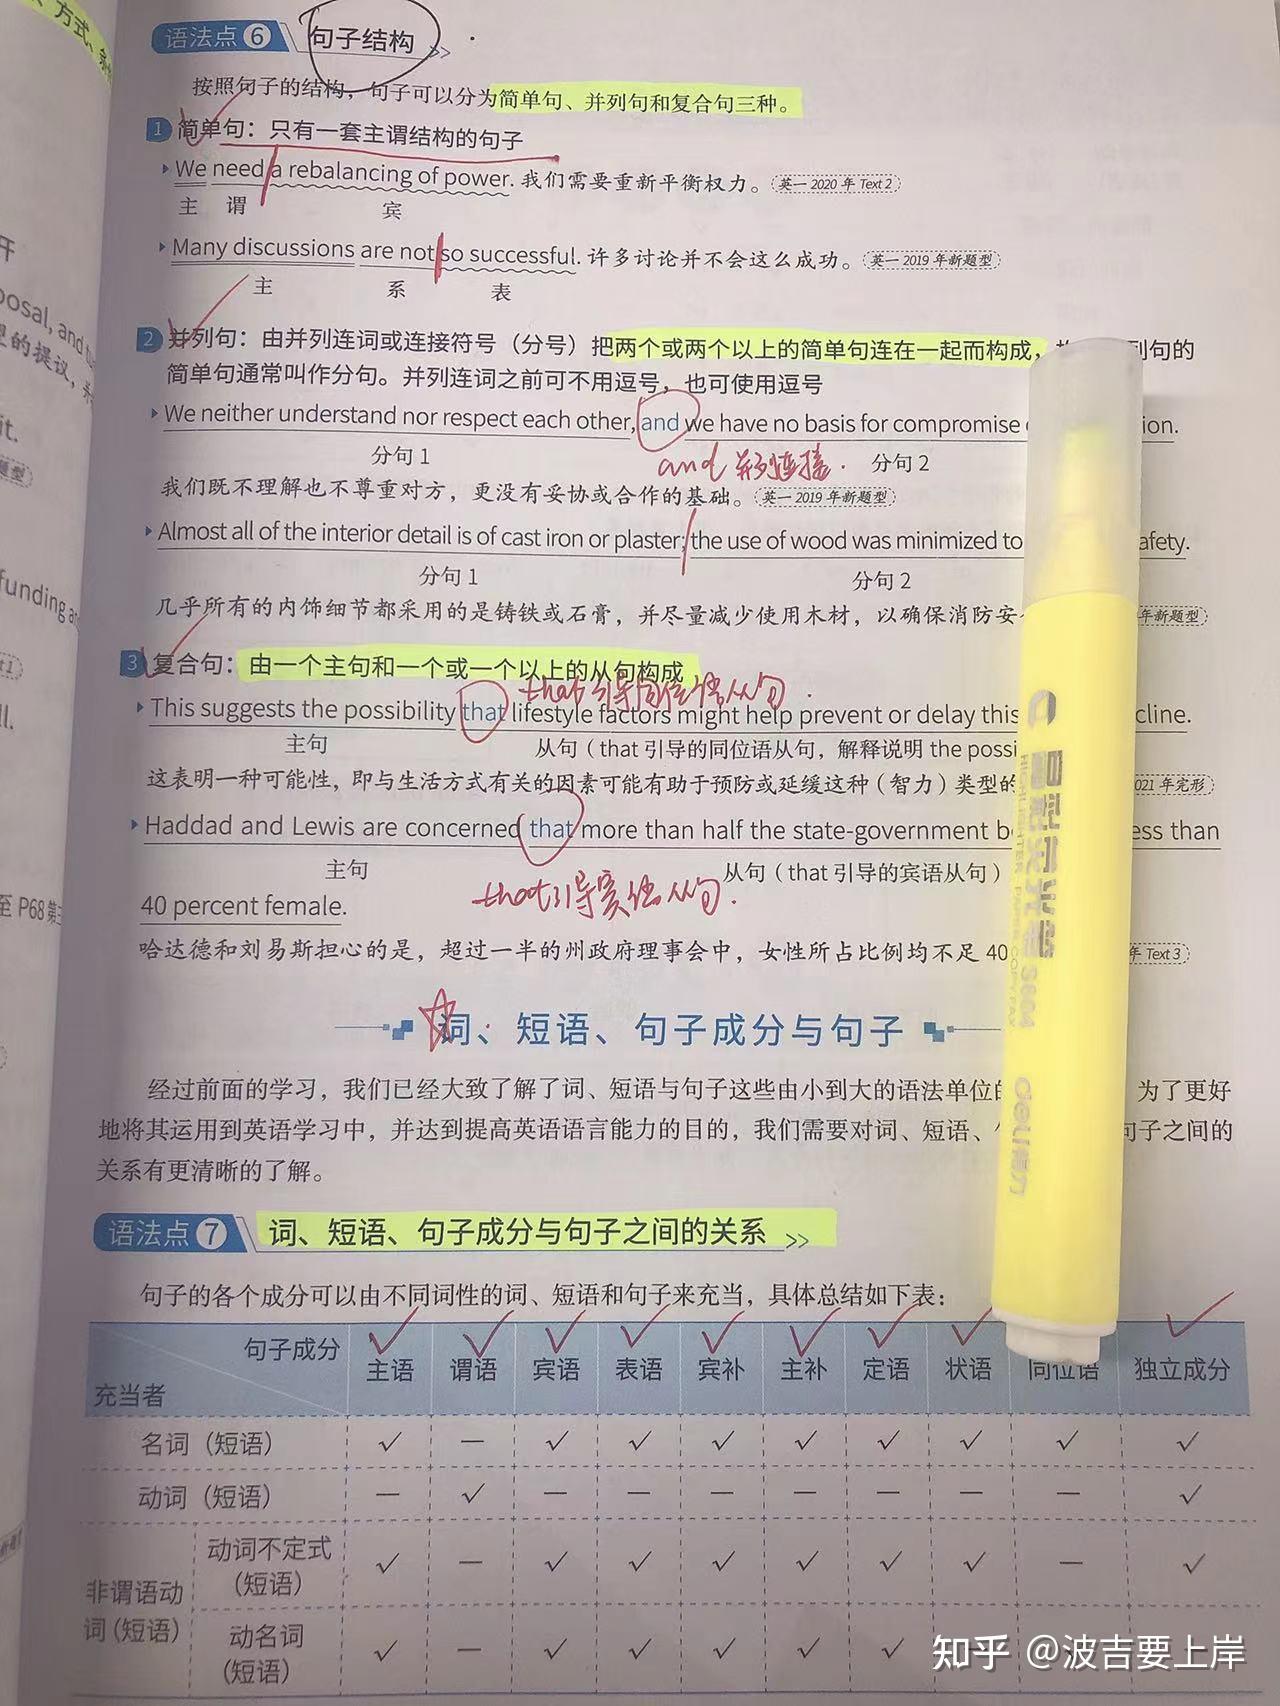 、方式、条
语法点 6 句子结构 >>
按照句子的结构，句子可以分为简单句、并列句和复合句三种。
1 简单句：只有一套主谓结构的句子
We need a rebalancing of power. 我们需要重新平衡权力。 英一 2020 年 Text 2
主 谓 宾
Many discussions are not so successful. 许多讨论并不会这么成功。 英一 2019 年新题型
主 系 表
开
posal, and
2 并列句：由并列连词或连接符号（分号）把两个或两个以上的简单句连在一起而构成， 列句的
的提议，
简单句通常叫作分句。并列连词之前可不用逗号，也可使用逗号
We neither understand nor respect each other, and we have no basis for compromise ion.
it.
分句 1 and 并列连接. 分句 2
题型
我们既不理解也不尊重对方，更没有妥协或合作的基础。 英一 2019 年新题型
Almost all of the interior detail is of cast iron or plaster; the use of wood was minimized to afety.
funding
分句 1 分句 2
几乎所有的内饰细节都采用的是铸铁或石膏，并尽量减少使用木材，以确保消防安 年新题型
3 复合句：由一个主句和一个或一个以上的从句构成
that引导同位语从句.
This suggests the possibility that lifestyle factors might help prevent or delay this cline.
ll.
主句 从句（that 引导的同位语从句，解释说明 the possi
这表明一种可能性，即与生活方式有关的因素可能有助于预防或延缓这种（智力）类型的 021 年完形
Haddad and Lewis are concerned that more than half the state-government b ess than
主句 从句（that 引导的宾语从句）
that引导宾语从句.
至 P68 第三
40 percent female.
哈达德和刘易斯担心的是，超过一半的州政府理事会中，女性所占比例均不足 40 年 Text 3
词、短语、句子成分与句子
经过前面的学习，我们已经大致了解了词、短语与句子这些由小到大的语法单位的 为了更好
地将其运用到英语学习中，并达到提高英语语言能力的目的，我们需要对词、短语、 句子之间的
关系有更清晰的了解。
语法点 7 词、短语、句子成分与句子之间的关系 >>
句子的各个成分可以由不同词性的词、短语和句子来充当，具体总结如下表：
句子成分 主语 谓语 宾语 表语 宾补 主补 定语 状语 同位语 独立成分
充当者
名词（短语） ✓ — ✓ ✓ ✓ ✓ ✓ ✓ ✓ ✓
动词（短语） — ✓ — — — — — — — ✓
非谓语动词（短语） 动词不定式（短语） ✓ — ✓ ✓ ✓ ✓ ✓ ✓ — ✓
动名词（短语） ✓ — ✓ ✓ ✓ ✓ ✓
HIGHLIGHTER
deli 得力
知乎 @波吉要上岸